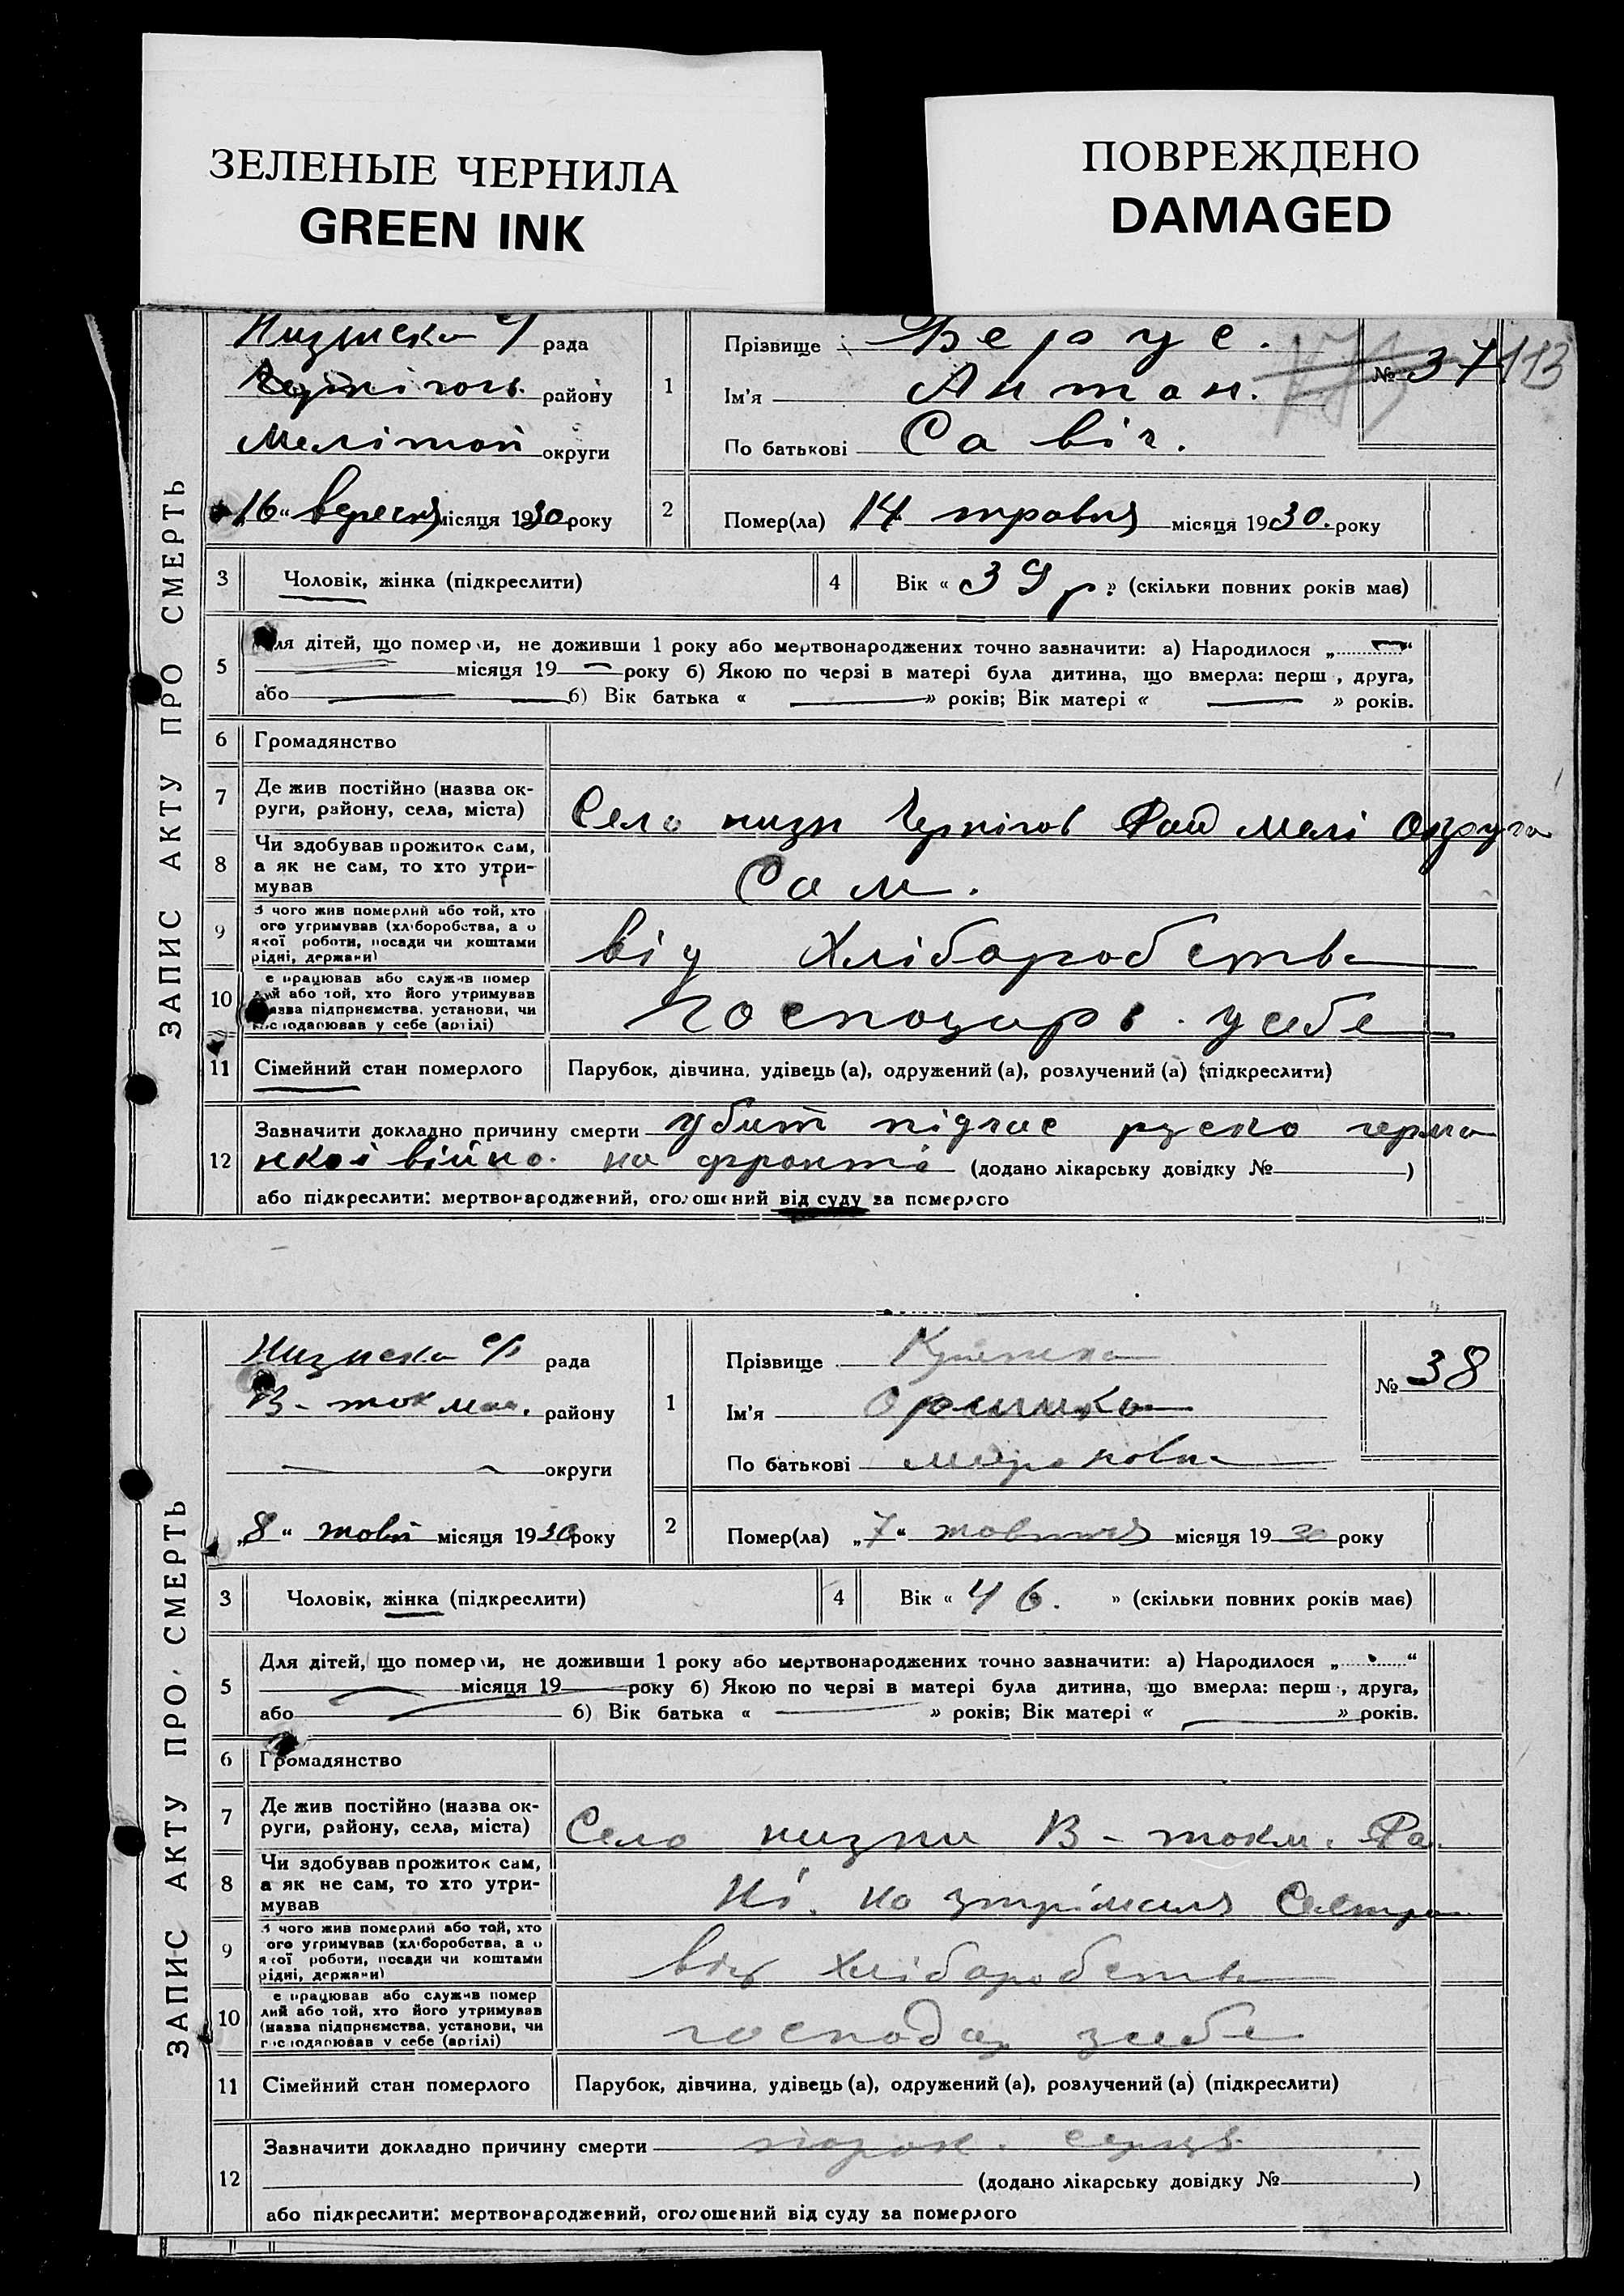 ЗЕЛЕНЫЕ ЧЕРНИЛА
GREEN INK
ПОВРЕЖДЕНО
DAMAGED
ЗАПИС АКТУ ПРО СМЕРТЬ
рада
району
Меліто округи
16 " вересня місяця 1930 року
1
Прізвище
Ім'я Антон.
По батькові Савіч.
№ 37
113
2
Помер(ла) 14 травня місяця 1930. року
3 Чоловік, жінка (підкреслити)
4 Вік « 39 р » (скільки повних років має)
5 ля дітей, що померли, не доживши 1 року або мертвонароджених точно зазначити: а) Народилося „ — “
місяця 19 — року б) Якою по черзі в матері була дитина, що вмерла: перш , друга,
або — б) Вік батька « — » років; Вік матері « — » років.
6 Громадянство
7 Де жив постійно (назва ок-
руги, району, села, міста)
Село низян Чернігов Рай Мелі Округа
8 Чи здобував прожиток сам,
а як не сам, то хто утри-
мував
Сам.
9 З чого жив померлий або той, хто
ого утримував (хліборобства, а о
якої роботи, посади чи коштами
рідні, держави)
від Хліборобства
10 е працював або служив помер
ий або той, хто його утримував
азва підприємства, установи, чи
господарював у себе (артілі)
Господарь. у себе
11 Сімейний стан померлого
Парубок, дівчина, удівець (а), одружений (а), розлучений (а) (підкреслити)
12 Зазначити докладно причину смерти убит підчас руско герма
нкої війно. на фронті (додано лікарську довідку № — )
або підкреслити: мертвонароджений, оголошений від суду за померлого
ЗАПИС АКТУ ПРО СМЕРТЬ
рада
В-токмак. району
— округи
„ 8 " жовт місяця 1930 року
1
Прізвище
Ім'я Оришка
По батькові
№ 38
2
Помер(ла) „ 7 " жовтня місяця 1930 року
3 Чоловік, жінка (підкреслити)
4 Вік « 46. » (скільки повних років має)
5 Для дітей, що померли, не доживши 1 року або мертвонароджених точно зазначити: а) Народилося „ “
місяця 19 — року б) Якою по черзі в матері була дитина, що вмерла: перш , друга,
або — б) Вік батька « — » років; Вік матері « — » років.
6 Громадянство
7 Де жив постійно (назва ок-
руги, району, села, міста)
Село низяни В-токм. Ра.
8 Чи здобував прожиток сам,
а як не сам, то хто утри-
мував
Ні. на утрімания Сестри
9 З чого жив померлий або той, хто
ого утримував (хліборобства, а о
якої роботи, посади чи коштами
рідні, держави)
від Хліборобства
10 е працював або служив помер
лий або той, хто його утримував
(назва підприємства, установи, чи
господарював у себе (артілі)
господар у себе
11 Сімейний стан померлого
Парубок, дівчина, удівець (а), одружений (а), розлучений (а) (підкреслити)
12 Зазначити докладно причину смерти порок. серця.
(додано лікарську довідку № — )
або підкреслити: мертвонароджений, оголошений від суду за померлого